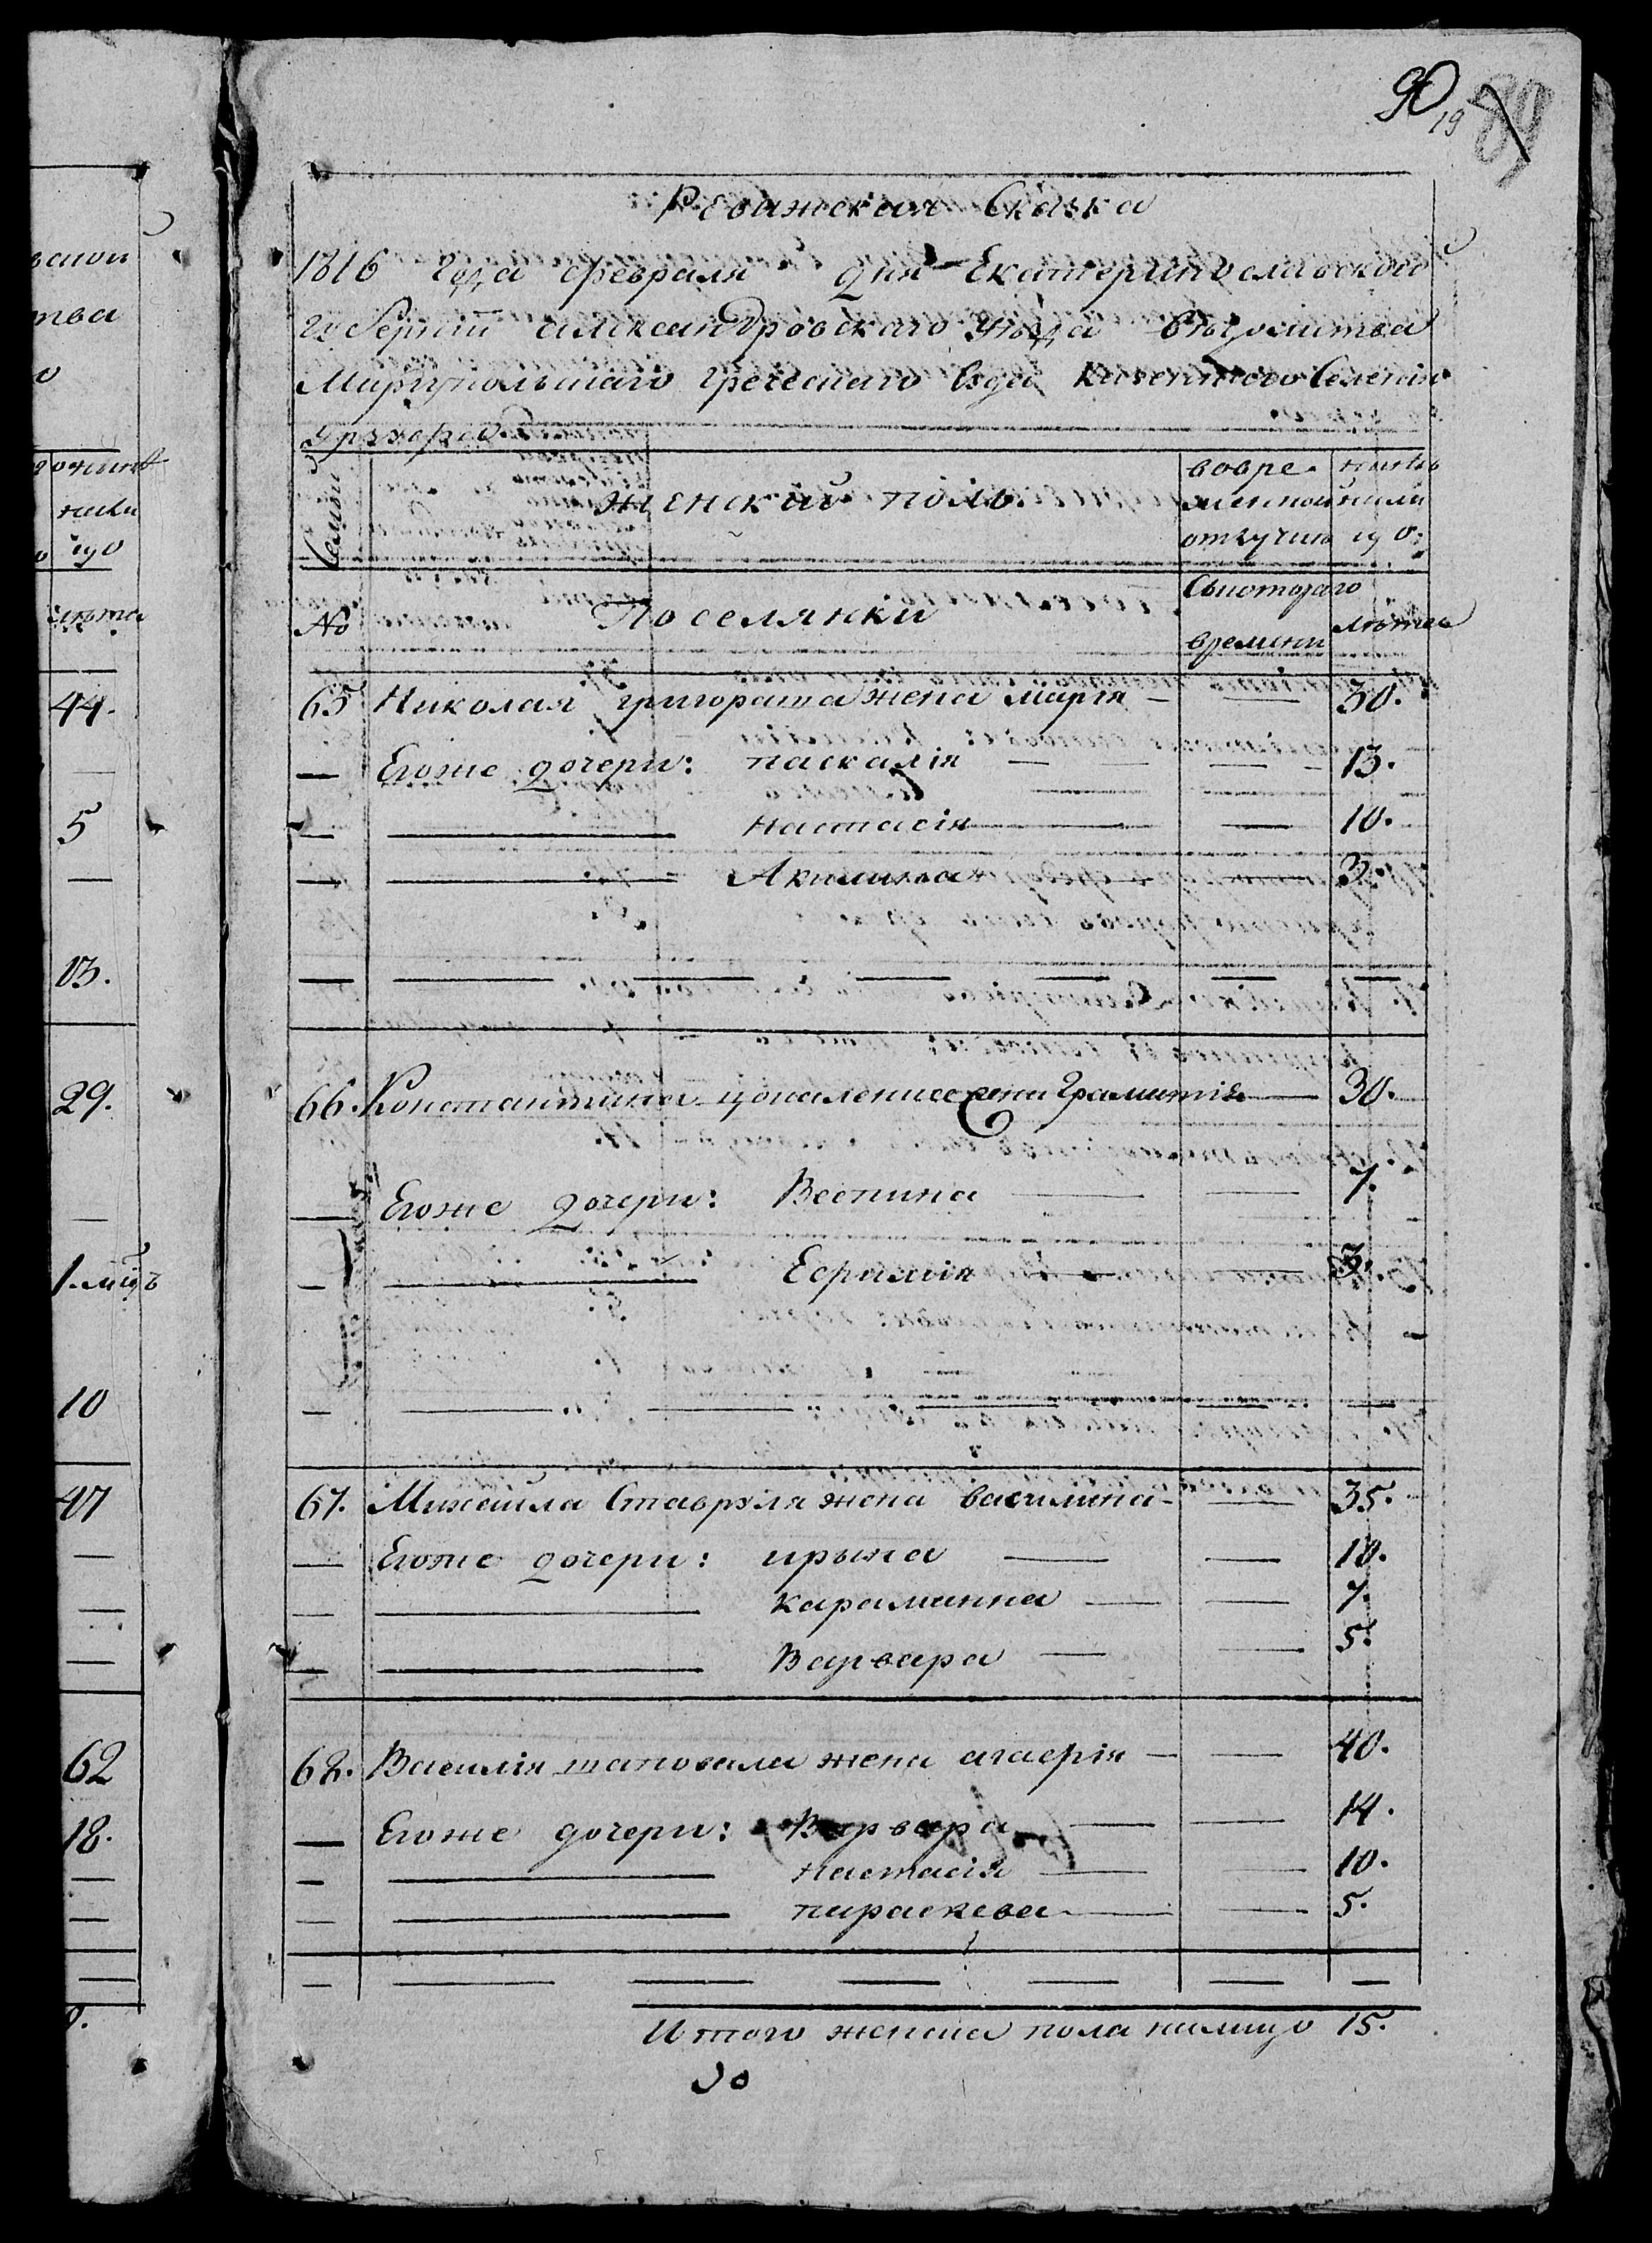 90 19 89
Ревижская Сказка
1816 года февраля дня Екатеринославской
Губернiи александровскаго уѣзда вѣдомства
Мариупольскаго греческаго Суда казеннаго Селенiя
Семьи
женскiй полъ.
вовре-
менной
отлучкѣ
нынѣ
нали
цо
№
Поселянки
Скотораго
времени
лѣта
65 Николая григораша жена марiя — — 30.
— Егоже дочери: паскалiя — — 13.
— — настасiя — — 10.
— — Акилина — — 3.
66. Константина жена — 30.
— Егоже дочери: Веспина — — 7.
— — — — 3.
67. Михаила Ставруля жена василина — — 35.
— Егоже дочери: ирына — — 10.
— — караманна — — 7.
— — Варвара — — 5.
68. Василiя шаповала жена агаерiя — — 40.
— Егоже дочери: Варвара — — 14.
— — настасiя — — 10.
— — параскева — — 5.
Итого женска пола налицо 15.
44.
5
13.
29.
10
47
62
18.